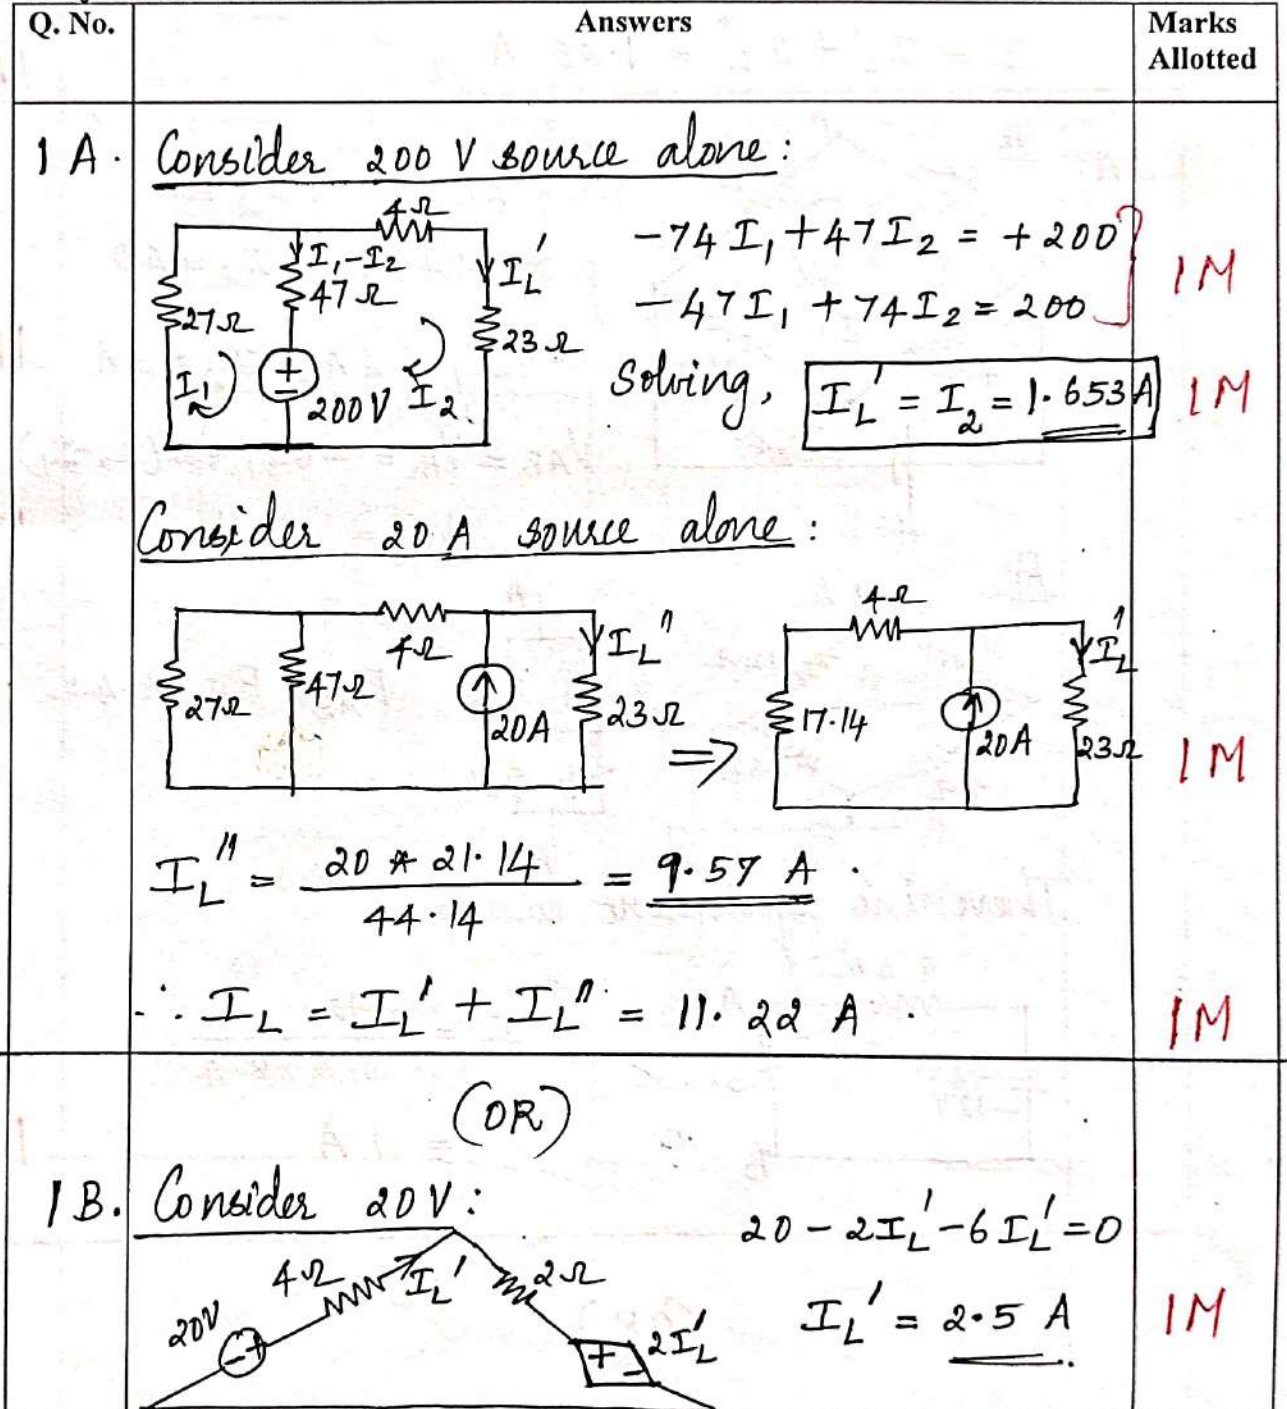 Q. No.
Answers
Marks
Allotted
1 A. Consider 200 V source alone:
4Ω
I₁-I₂
47Ω
I_L'
27Ω
23Ω
I₁
200V
I₂
-74 I₁ + 47 I₂ = + 200
-47 I₁ + 74 I₂ = 200
1M
Solving, I_L' = I₂ = 1.653 A
1M
Consider 20 A source alone:
4Ω
I_L''
27Ω
47Ω
20A
23Ω
⇒
4Ω
I_L'
17.14
20A
23Ω
1M
I_L'' = 20 * 21.14 / 44.14 = 9.57 A.
∴ I_L = I_L' + I_L'' = 11.22 A.
1M
(OR)
1 B. Consider 20V:
20 - 2I_L' - 6I_L' = 0
4Ω
I_L'
2Ω
20V
2I_L'
I_L' = 2.5 A.
1M